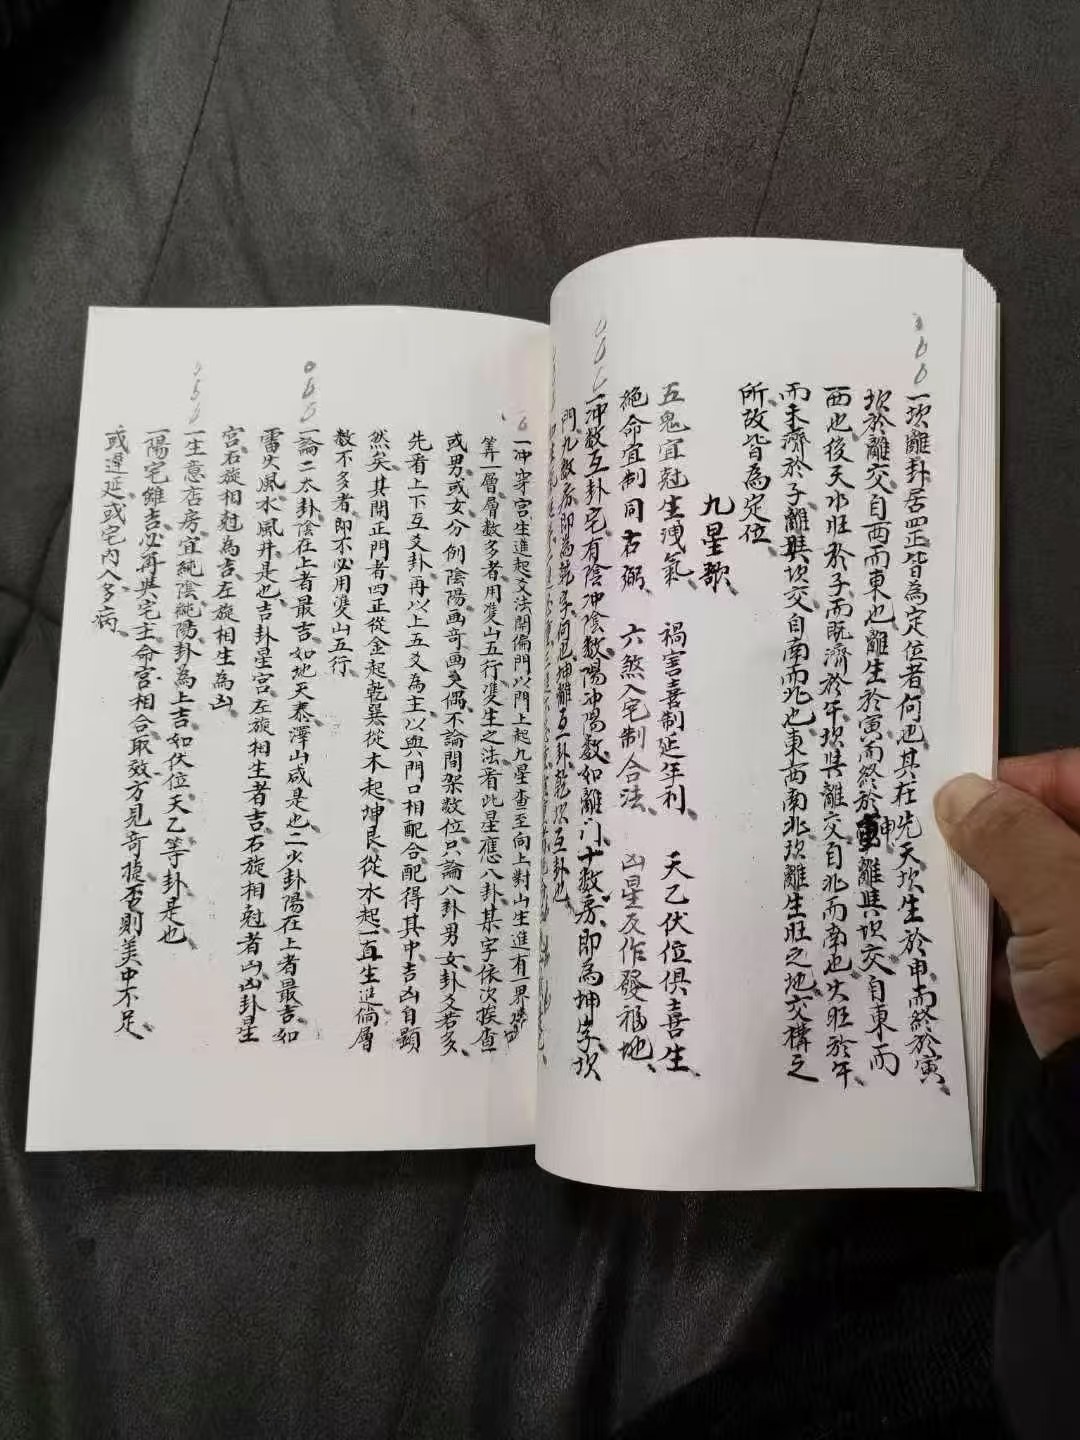 一坎離卦居四正皆為定位者何也其在先天坎生於申而終於寅
坎於離交自西而東也離生於寅而終於申離與坎交自東而
西也後天水旺於子而既濟於午坎與離交自北而南也火旺於午
而未濟於子離與坎交自南而北也東西南北坎離生旺之地交構之
所故皆為定位
九星歌
五鬼宜尅生洩氣 禍害喜制延年利 天乙伏位俱喜生
絕命宜制同右弼 六煞入宅制合法 凶星反作發福地
一冲数互卦宅有陰冲陰数陽冲陽数如離门十数房即為坤字坎
門九数房即為乾字何也坤離互卦乾坎互卦也
一冲穿宫生進起爻法開偏門以門上起九星查至向上對山生進有一界
筭一層層数多者用双山五行双生之法看此星應八卦某字依次挨查
或男或女分例陰陽画奇画爻偶不論間架数位只論八卦男女卦爻若多
先看上下互爻卦再以上五爻為主以與門口相配合配得其中吉凶自顕
然矣其開正門者四正從金起乾巽從木起坤艮從水起一直生進倘層
数不多者即不必用双山五行
一論二太卦陰在上者最吉如地天泰澤山咸是也二少卦陽在上者最吉如
雷火風水風井是也吉卦星宫左旋相生者吉右旋相尅者凶凶卦星
宫右旋相尅為吉左旋相生為凶
一生意店房宜純陰純陽卦為上吉如伏位天乙等卦是也
一陽宅雖吉必再與宅主命宫相合取效方見奇捷否則美中不足
或遲延或宅内人多病